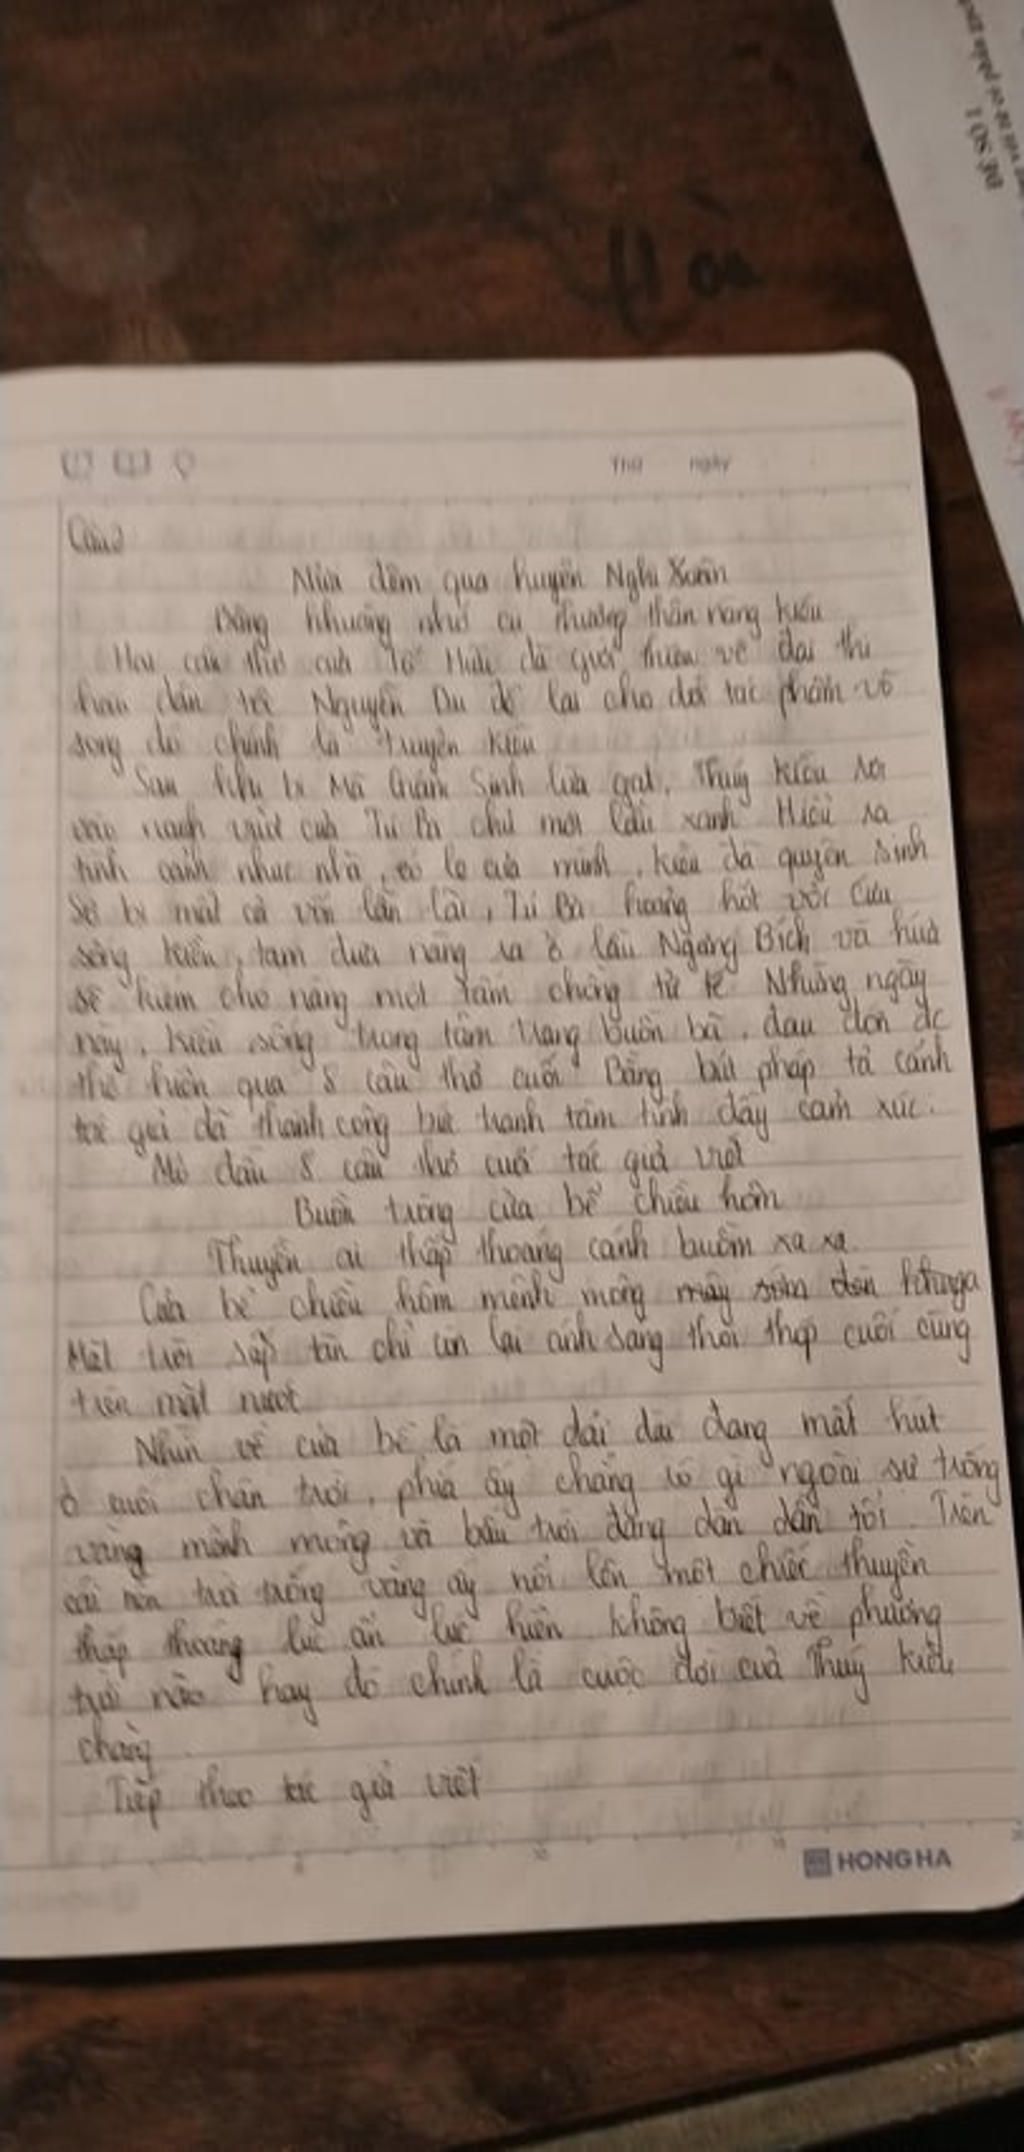 ĐỀ SỐ 1
Thứ ngày
Câu 2
Nửa đêm qua huyện Nghi Xuân
Bâng khuâng nhớ cụ thương thân nàng Kiều
Hai câu thơ của Tố Hữu đã giới thiệu về đại thi
hào dân tộc Nguyễn Du để lại cho đời tác phẩm vô
song đó chính là truyện Kiều
Sau khi bị Mã Giám Sinh lừa gạt, Thuý Kiều rơi
vào của Tú Bà chủ một lầu xanh Hiểu ra
tình cảnh nhục nhã, của mình, Kiều đã quyên sinh
Sợ bị mất cả vốn lẫn lãi, Tú Bà hoảng hốt vội cứu
sống Kiều, tạm đưa nàng ra ở lầu Ngưng Bích và hứa
sẽ kiếm cho nàng một tấm chồng tử tế Những ngày
này, Kiều sống trong tâm trạng buồn bã, đau đớn đc
thể hiện qua 8 câu thơ cuối Bằng bút pháp tả cảnh
tác giả đã thành công bức tranh tâm tình đầy cảm xúc.
Mở đầu 8 câu thơ cuối tác giả viết
Buồn trông cửa bể chiều hôm
Thuyền ai thấp thoáng cánh buồm xa xa.
Cửa bể chiều hôm mênh mông mây sớm đèn khuya
Mặt trời sắp tàn chỉ còn lại ánh sáng thoi thóp cuối cùng
trên mặt nước
Nhìn về cửa bể là một dải dài đang mất hút
ở cuối chân trời, phía ấy chẳng có gì ngoài sự trống
vắng mênh mông và bầu trời đang dần dần tối. Trên
cái nền trời trống vắng ấy nổi lên một chiếc thuyền
thấp thoáng lúc ẩn lúc hiện không biết về phương
trời nào hay đó chính là cuộc đời của Thuý Kiều
chăng
Tiếp theo tác giả viết
HONG HA